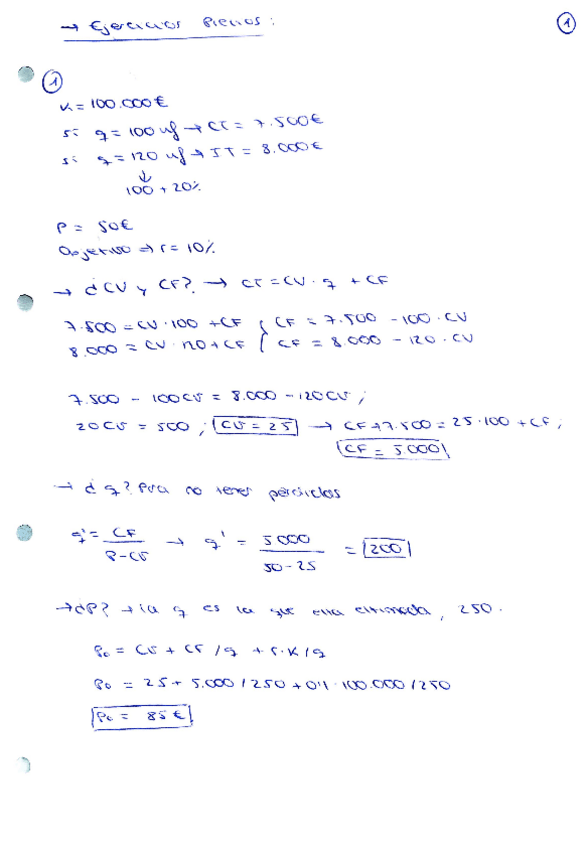 → Ejercicios Precios:
1
1
K = 100.000€
si q = 100 uf → CT = 7.500€
si q = 120 uf → IT = 8.000€
↓
100 + 20%
P = 50€
Objetivo ⇒ r = 10%
→ ¿CV y CF? → CT = CV · q + CF
7.500 = CV · 100 + CF { CF = 7.500 - 100 · CV
8.000 = CV · 120 + CF { CF = 8.000 - 120 · CV
7.500 - 100CV = 8.000 - 120CV;
20CV = 500 ; CV = 25 → CF → 7.500 = 25 · 100 + CF ;
CF = 5.000
→ ¿q? Para no tener pérdidas
q' = CF / P - CV → q' = 5000 / 50 - 25 = 200
→ ¿P? → la q es la que ella estimada, 250.
Po = CV + CF / q + r · K / q
Po = 25 + 5.000 / 250 + 0'1 · 100.000 / 250
Po = 85€